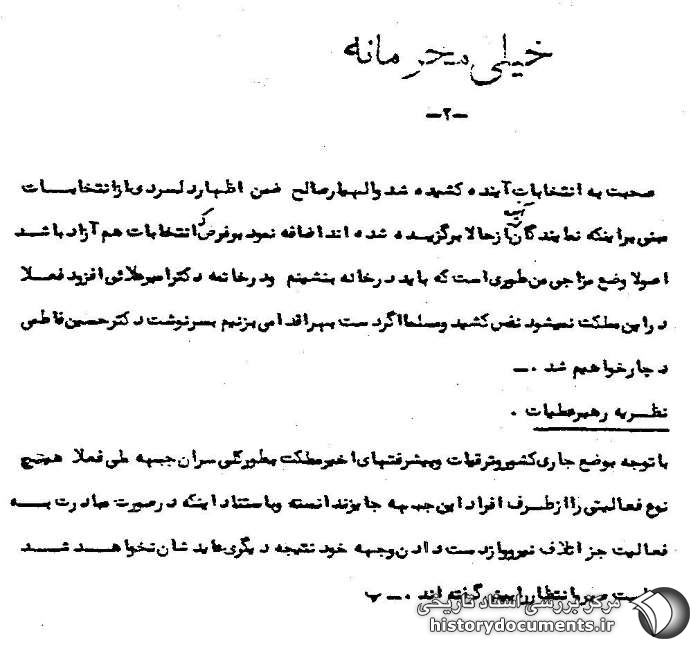 خیلی محرمانه
-۲-
صحبت به انتخابات آینده کشیده شد والهیار صالح ضمن اظهار دلسردی از انتخابات
مبنی بر اینکه نمایندگان از حالا برگزیده شده اند اضافه نمود بر فرض که انتخابات هم آزاد باشد
اصولا وضع مزاجی من طوری است که باید در خانه بنشینم ودرخاتمه دکتر امیرعلائی افزود فعلا
در این مملکت نمیشود نفس کشید ومسلما اگر دست بهر اقدامی بزنیم بسرنوشت دکتر حسین فاطمی
دچار خواهیم شد .ـ
نظریه رهبر عملیات .
با توجه بوضع جاری کشور وترقیات وپیشرفتهای اخیر مملکت بطور کلی سران جبهه ملی فعلا هیچ
نوع فعالیتی را از طرف افراد این جبهه جایز ندانسته وباستناد اینکه در صورت مبادرت به
فعالیت جز اتلاف نیرو و از دست دادن وجهه خود نتیجه دیگری عاید شان نخواهد شد
صبر و انتظار را پیش گرفته اند .ـ پ
مرکز بررسی اسناد تاریخی
historydocuments.ir